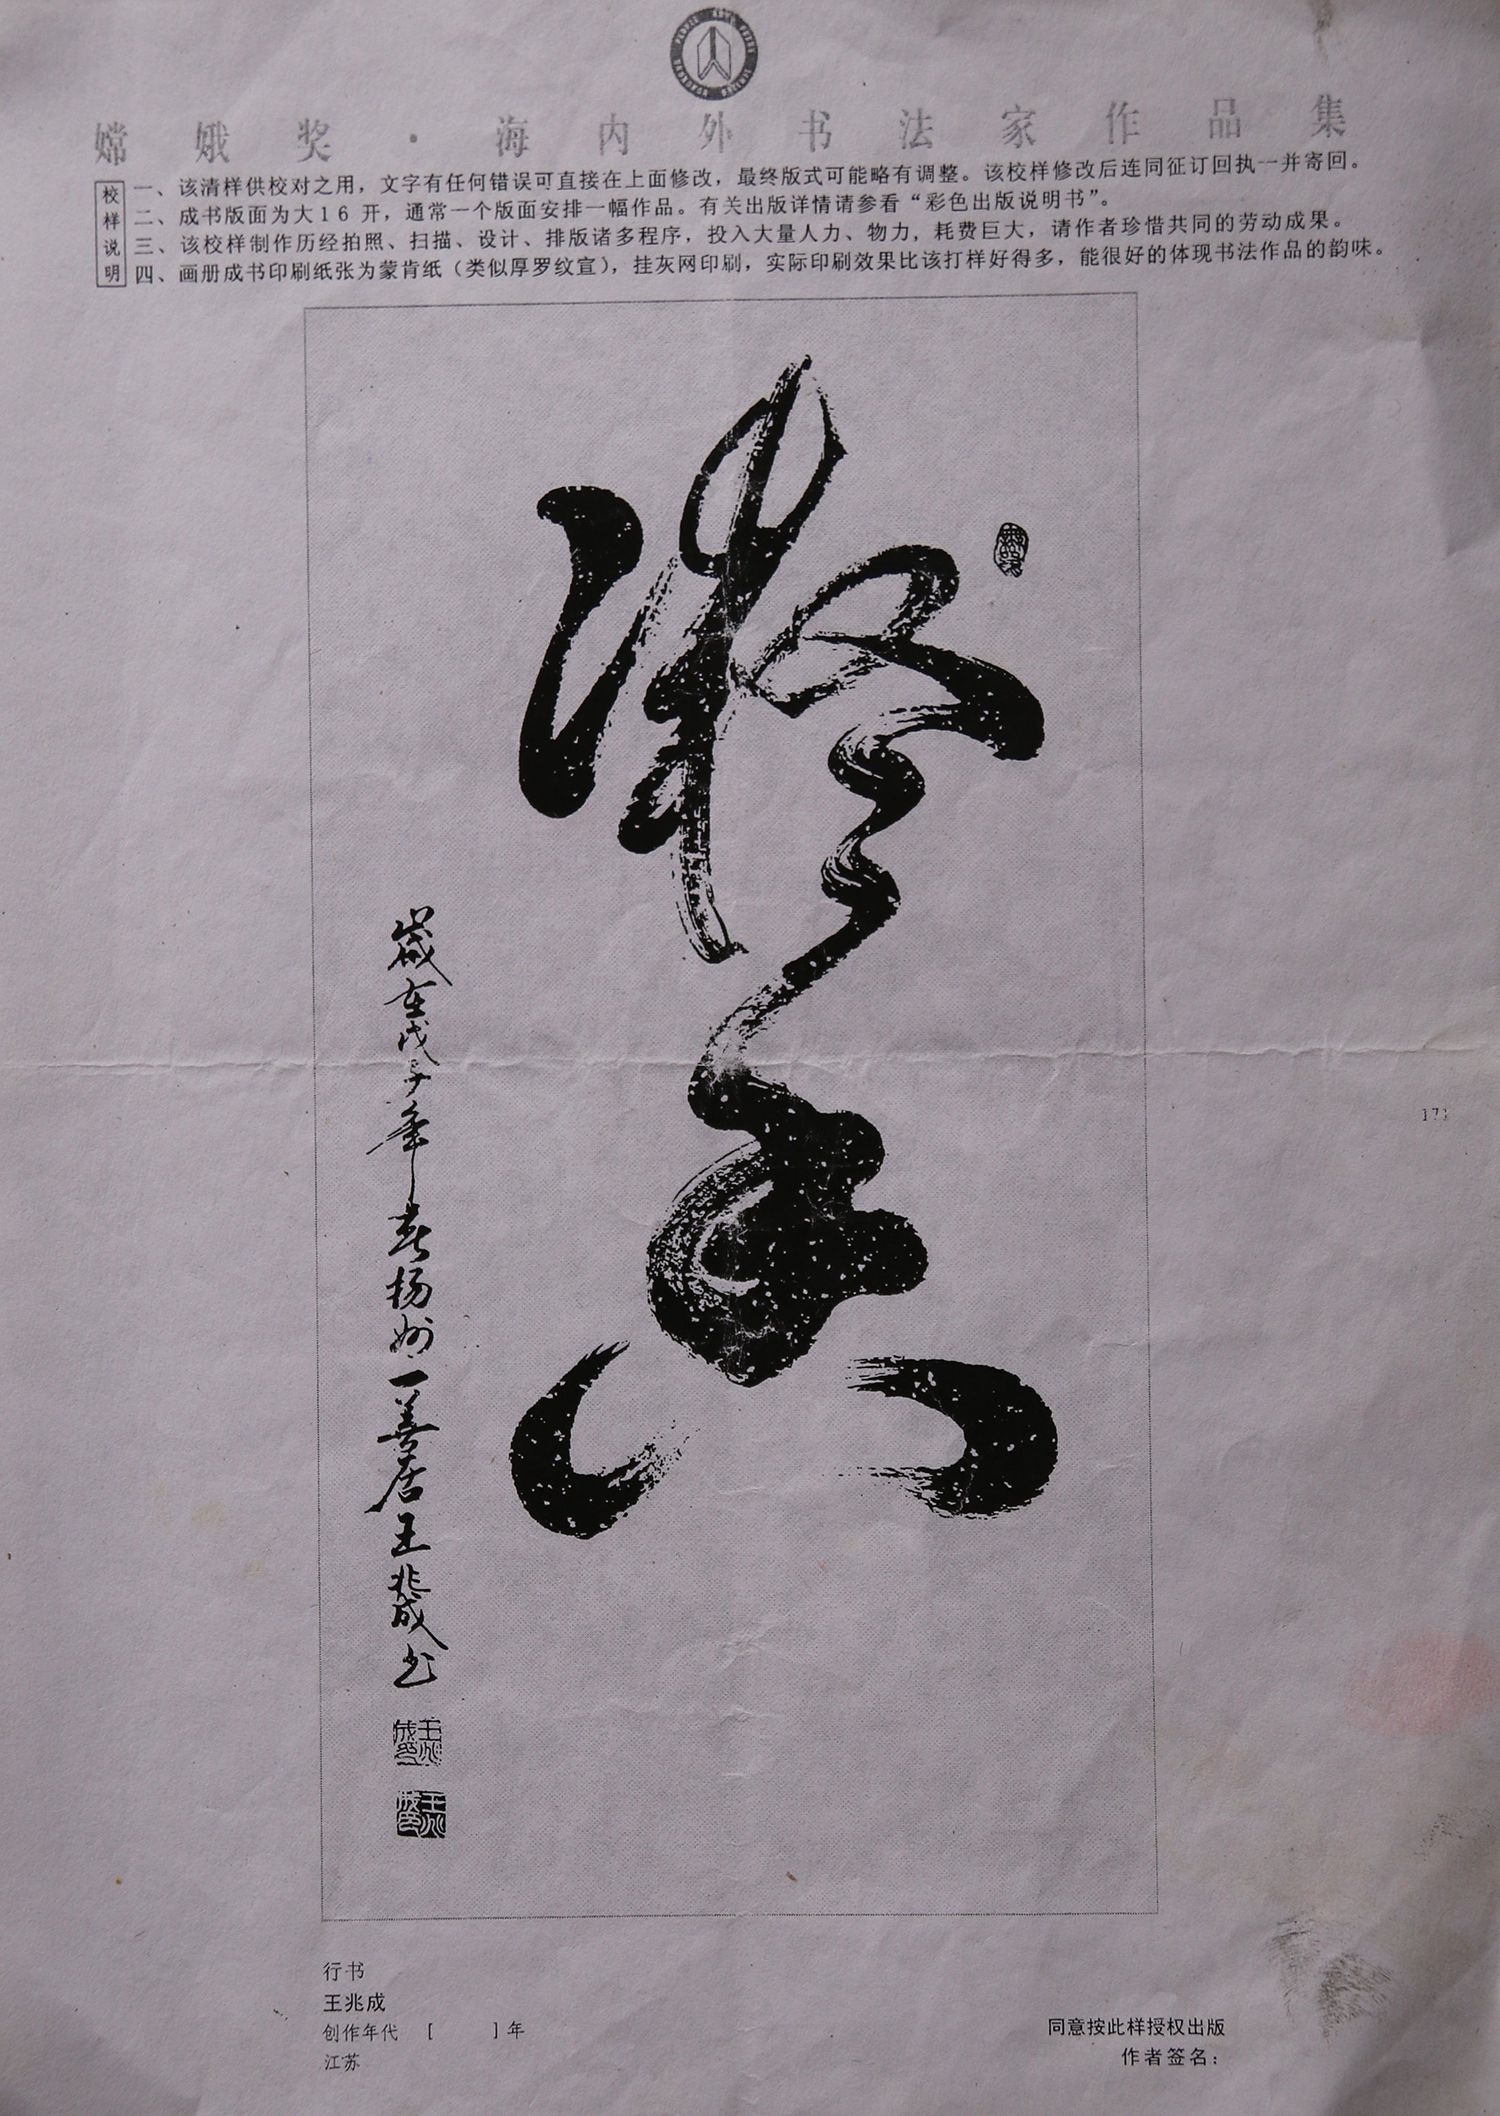 嫦娥奖·海内外书法家作品集
校样说明
一、该清样供校对之用，文字有任何错误可直接在上面修改，最终版式可能略有调整。该校样修改后连同征订回执一并寄回。
二、成书版面为大16开，通常一个版面安排一幅作品。有关出版详情请参看“彩色出版说明书”。
三、该校样制作历经拍照、扫描、设计、排版诸多程序，投入大量人力、物力，耗费巨大，请作者珍惜共同的劳动成果。
四、画册成书印刷纸张为蒙肯纸（类似厚罗纹宣），挂灰网印刷，实际印刷效果比该打样好得多，能很好的体现书法作品的韵味。
歲在戊子年春杨州一善居王兆成书
王兆成印
王兆成印
171
行书
王兆成
创作年代 [ ]年
江苏
同意按此样授权出版
作者签名：